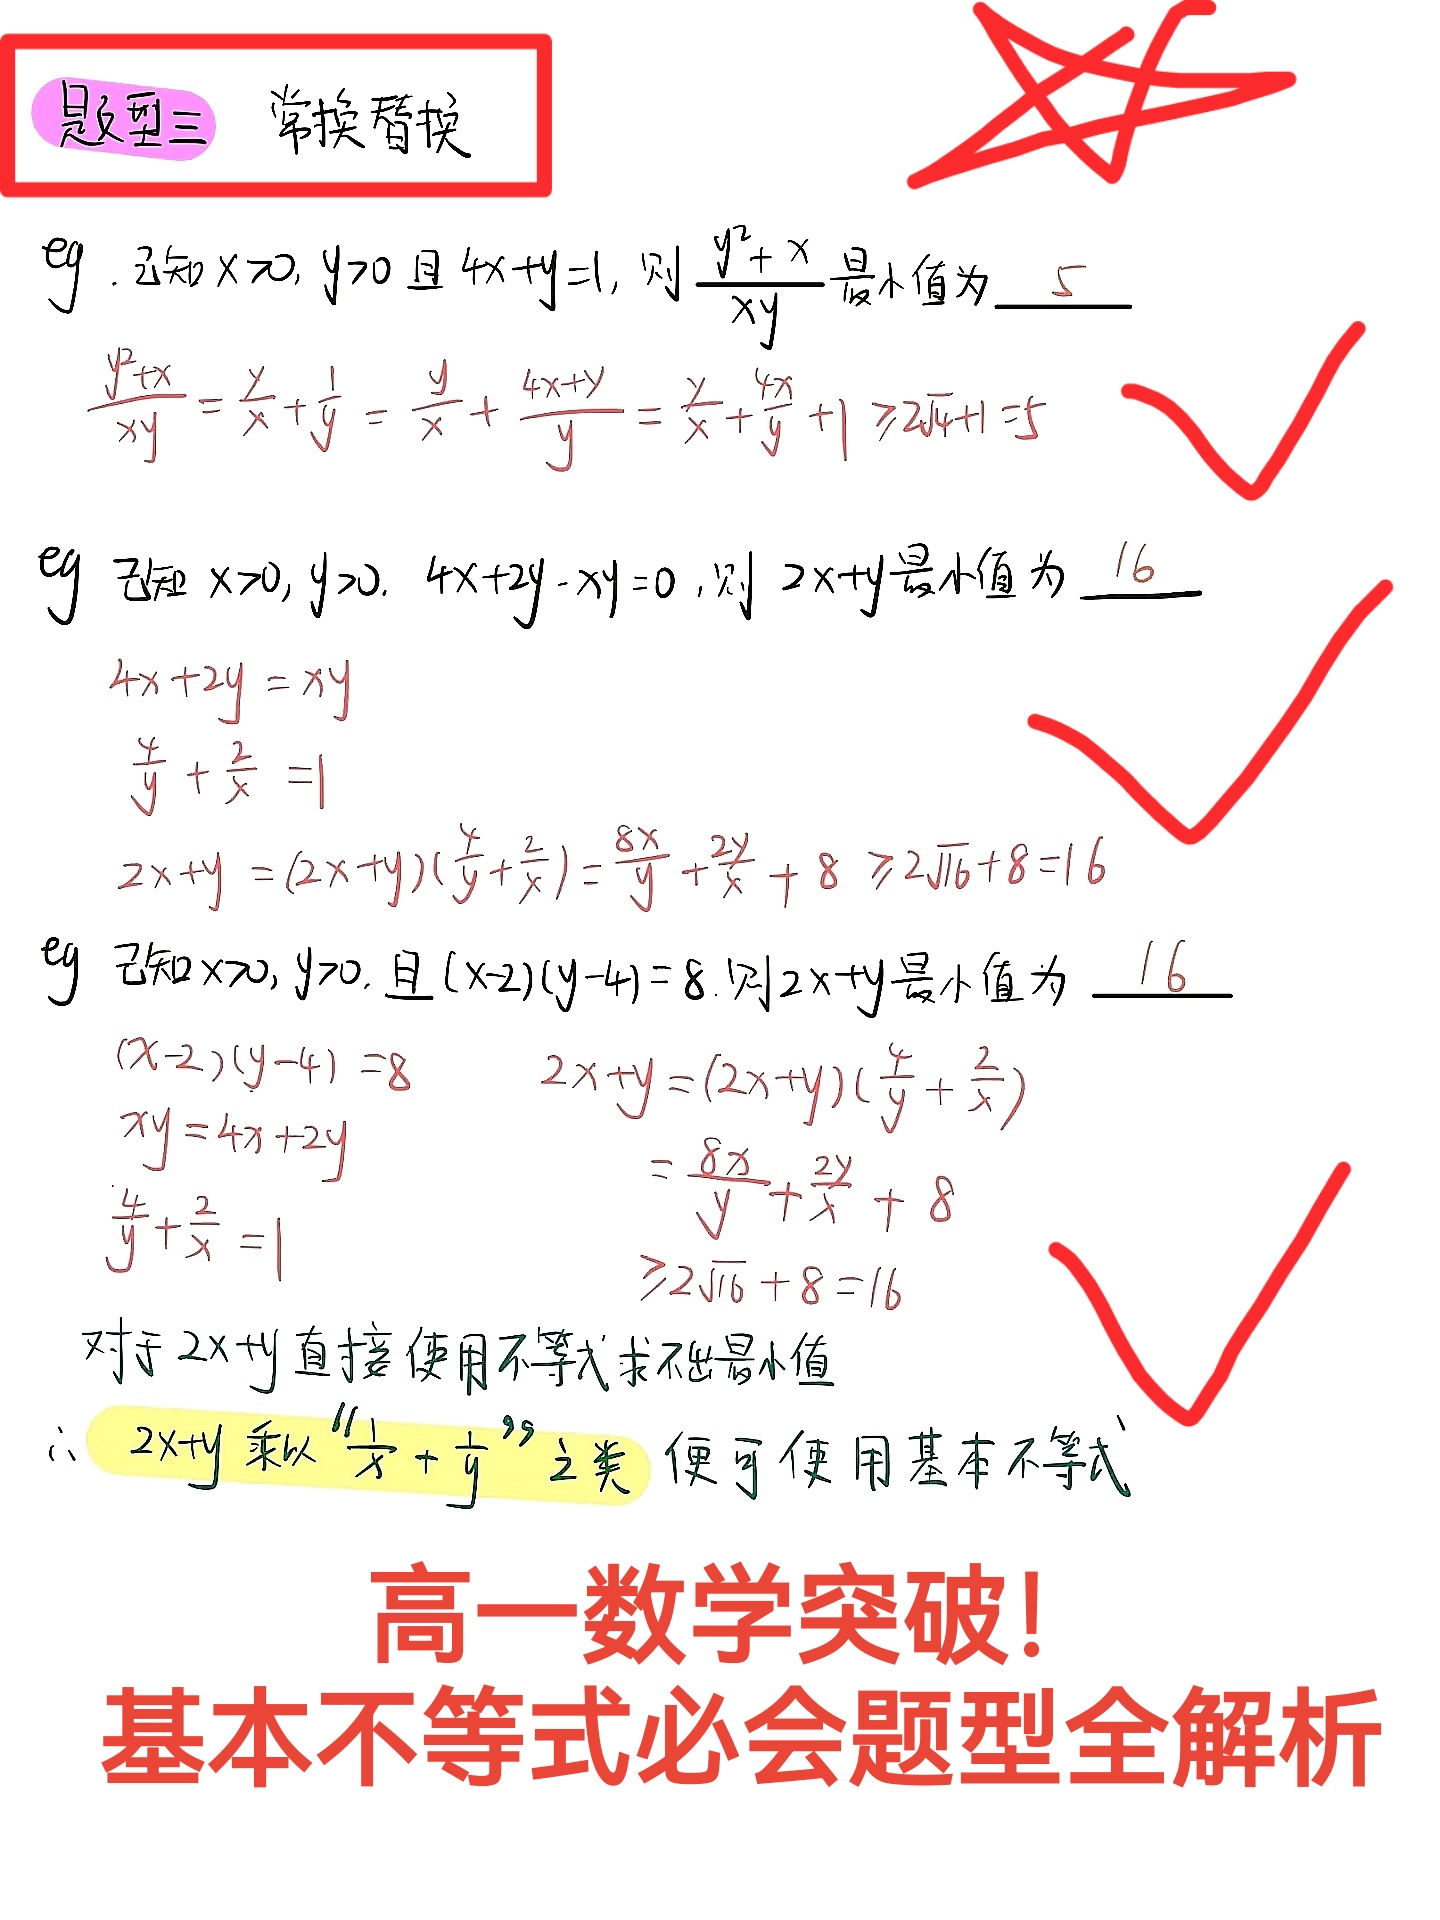 题型三 常换替换
eg. 已知x>0, y>0 且 4x+y=1, 则 (y²+x)/(xy) 最小值为 5
(y²+x)/(xy) = y/x + 1/y = y/x + (4x+y)/y = y/x + 4x/y + 1 ≥ 2√4+1 = 5
eg 已知 x>0, y>0. 4x+2y-xy=0, 则 2x+y最小值为 16
4x+2y = xy
4/y + 2/x = 1
2x+y = (2x+y)(4/y + 2/x) = 8x/y + 2y/x + 8 ≥ 2√16+8=16
eg 已知x>0, y>0. 且(x-2)(y-4)=8. 则2x+y最小值为 16
(x-2)(y-4) = 8
xy = 4x+2y
4/y + 2/x = 1
2x+y = (2x+y)(4/y + 2/x)
= 8x/y + 2y/x + 8
≥ 2√16 + 8 = 16
对于 2x+y 直接使用不等式求不出最小值
∴ 2x+y 乘以 “1/x + 1/y” 之类 便可使用基本不等式
高一数学突破!
基本不等式必会题型全解析